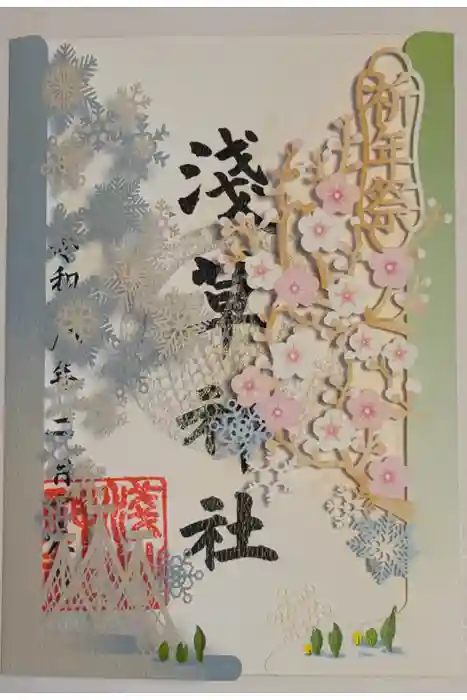 祈年祭
浅草神社
令和八年二月
淺